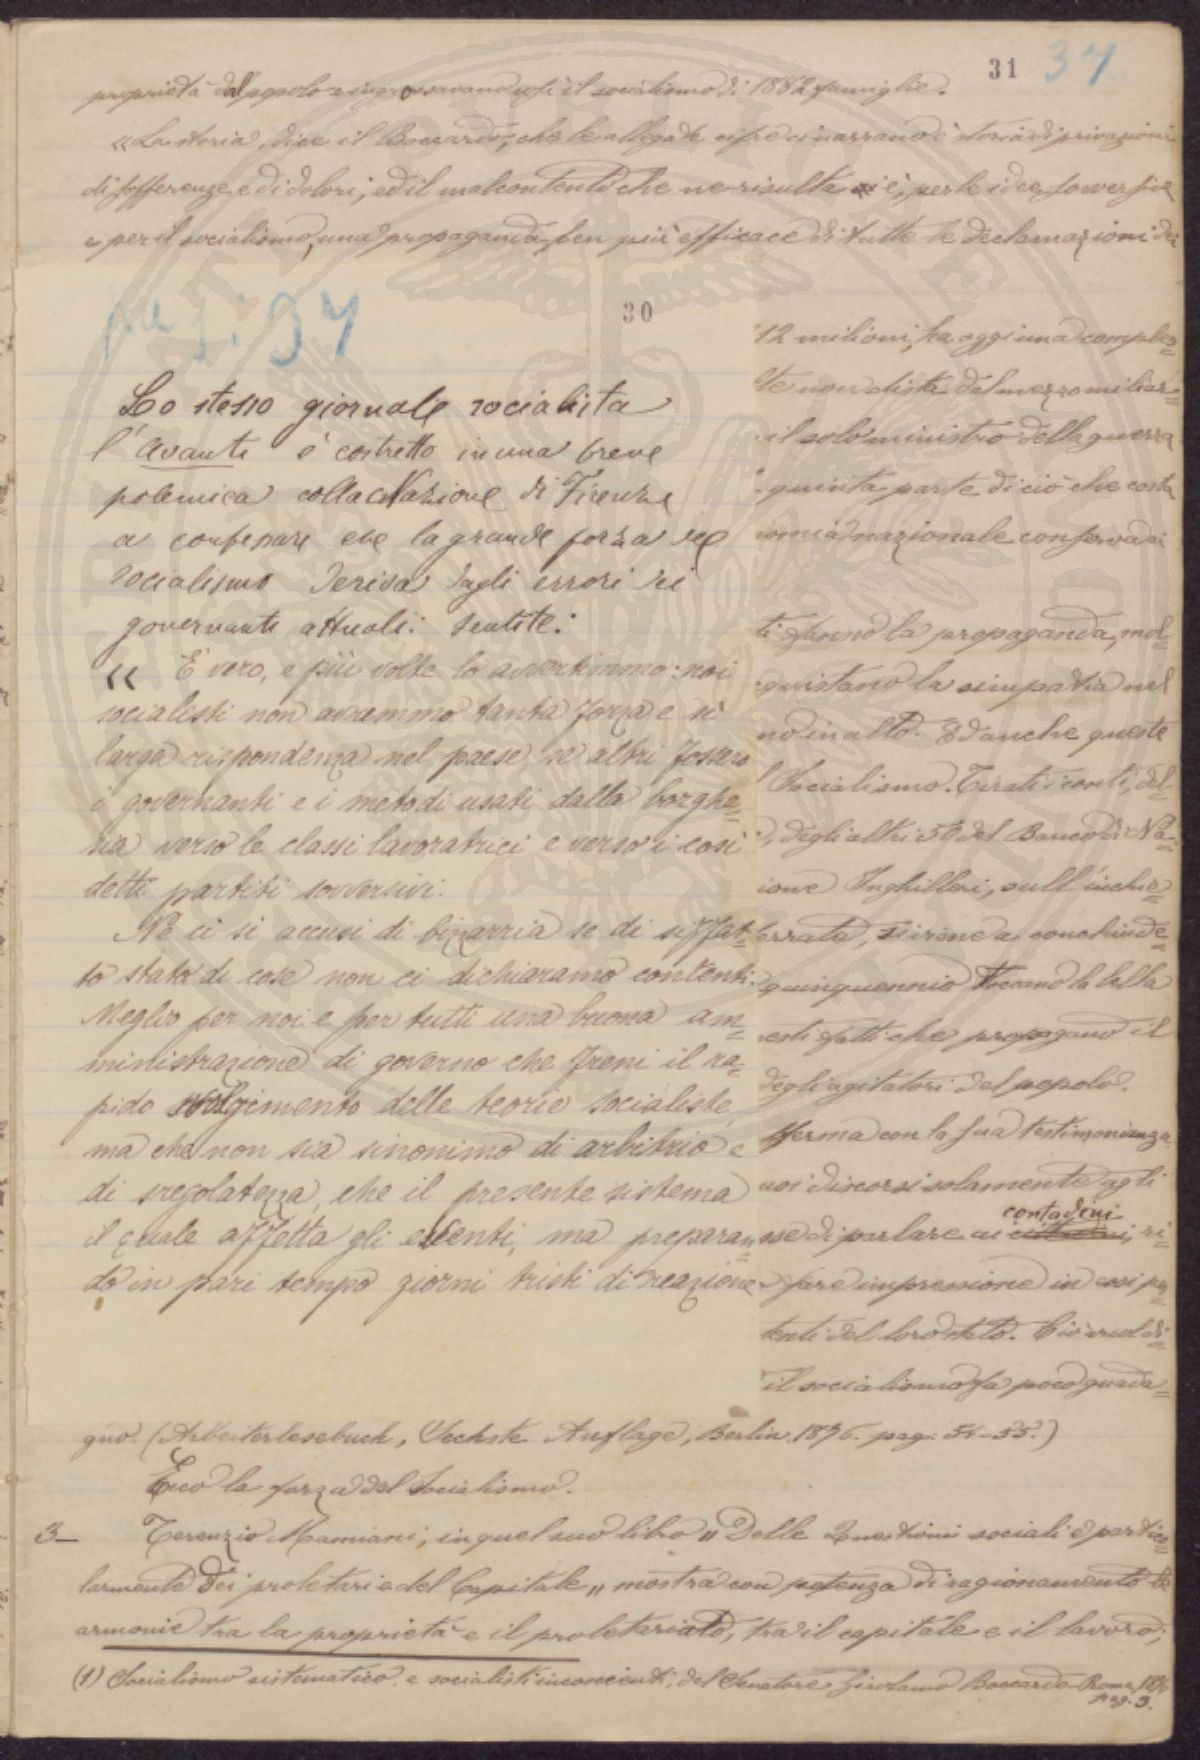 31 37
proprietà dal popolo e ingrossavano così il socialismo di 1882 famiglie.
« La storia, dice il Boccardo, che le allegate cifre ci narrano è storia di privazioni
di sofferenze e di dolori; ed il malcontento che ne risulta è, per le idee sovversive
e per il socialismo, una propaganda ben più efficace di tutte le declamazioni dei
pag: 37
30
Lo stesso giornale socialista
l'Avanti è costretto in una breve
polemica colla Nazione di Firenze
a confessare che la grande forza del
socialismo deriva dagli errori dei
governanti attuali: sentite:
« È vero, e più volte lo avvertimmo: noi
socialisti non avremmo tanta forza e sì
larga rispondenza nel paese, se altri fossero
i governanti e i metodi usati dalla borghe=
sia verso le classi lavoratrici e verso i così
detti partiti sovversivi.
Né ci si accusi di bizzarria se di siffat=
to stato di cose non ci dichiaramo contenti.
Meglio per noi e per tutti una buona am=
ministrazione di governo che freni il ra=
pido svolgimento delle teorie socialiste,
ma che non sia sinonimo di arbitrio e
di sregolatezza, che il presente sistema
il quale affetta gli eventi, ma preparan=
do in pari tempo giorni tristi di reazione
12 milioni, ha oggi una comples=
te non dista del mezzo miliar=
il solo ministro della guerra
quinta parte di ciò che costa
nomia nazionale conserva di
ti fanno la propaganda, mol=
quistano la simpatia nel
no in alto. Ed anche queste
Socialismo. Tirati i conti, del=
, degli altri 50 del Banco di Na=
ione Inghilleri, sull'inchie=
errate, si viene a conchiude=
quinquennio toccano la bella
esti fatti che propagano il
degli agitatori del popolo.
fferma con la sua testimonianza
uoi discorsi solamente agli
contadini
sse di parlare ai cittadini, ri=
fare impressione in essi pa=
tenti del loro stato. Ciò vuol di=
il socialismo fa poco guada=
gno. (Arbeiterlesebuch, Sechste Auflage, Berlin 1896. pag. 54-55.)
Ecco la forza del Socialismo.
3_ Terenzio Mamiani, in quel suo libro „ Delle Questioni sociali e partico=
larmente dei proletari e del Capitale „ mostra con potenza di ragionamento le
armonie tra la proprietà e il proletariato, tra il capitale e il lavoro;
(1) Socialismo sistematico e socialisti incoscienti, del Senatore Girolamo Boccardo - Roma, 1896
pag. 3.